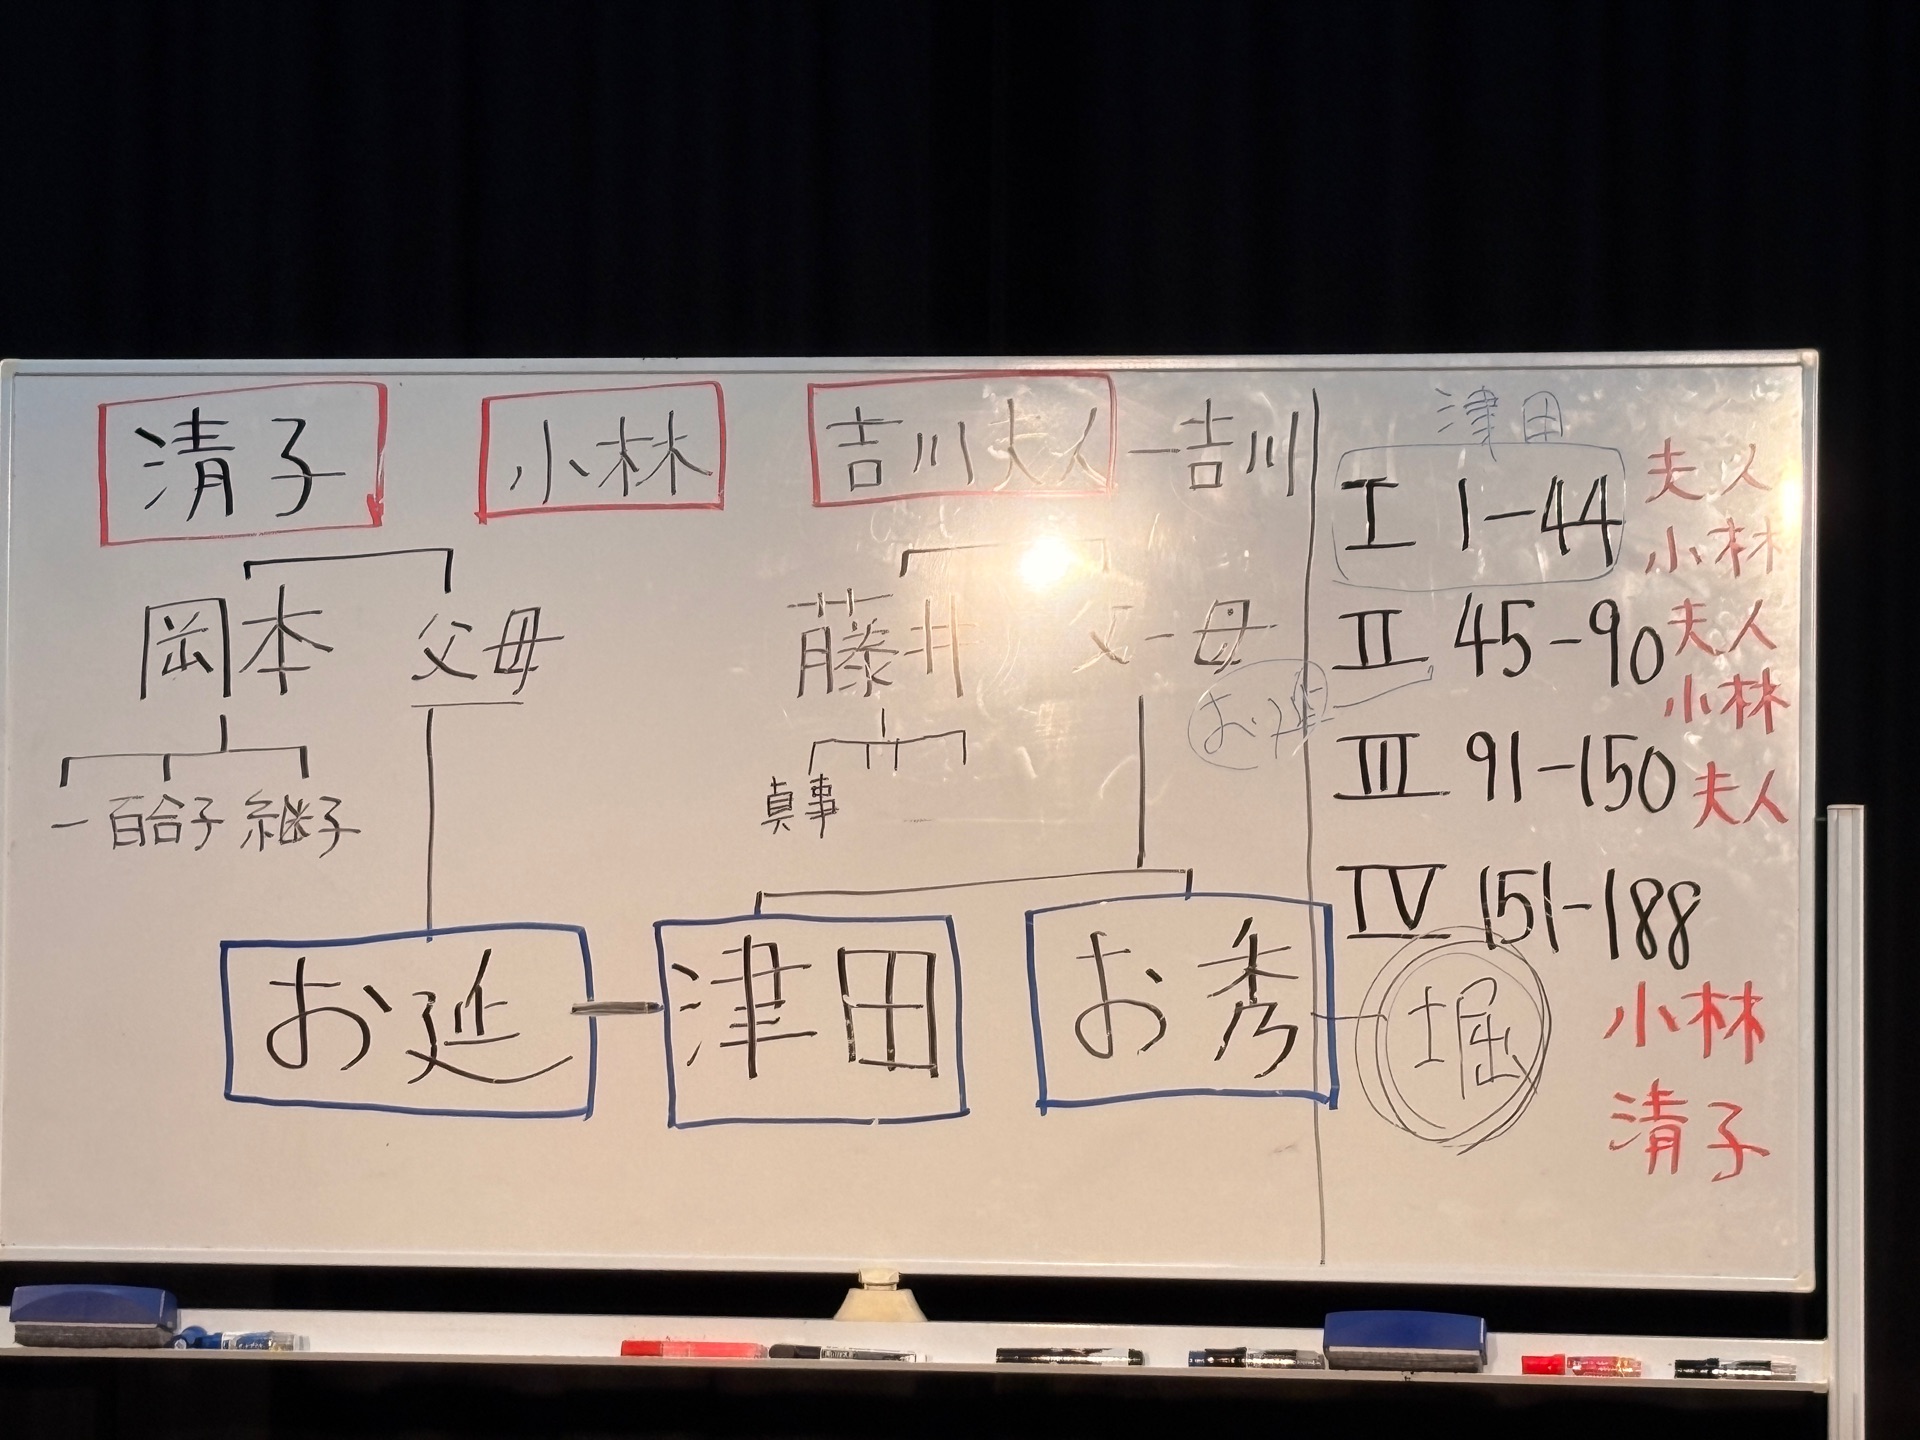 清子
小林
吉川夫人 ― 吉川
岡本 父母
一 百合子 継子
藤井 父 ― 母
真事
お延 津田 お秀
堀
津田
I 1-44 夫人
小林
お延
II 45-90 夫人
小林
III 91-150 夫人
IV 151-188
小林
清子